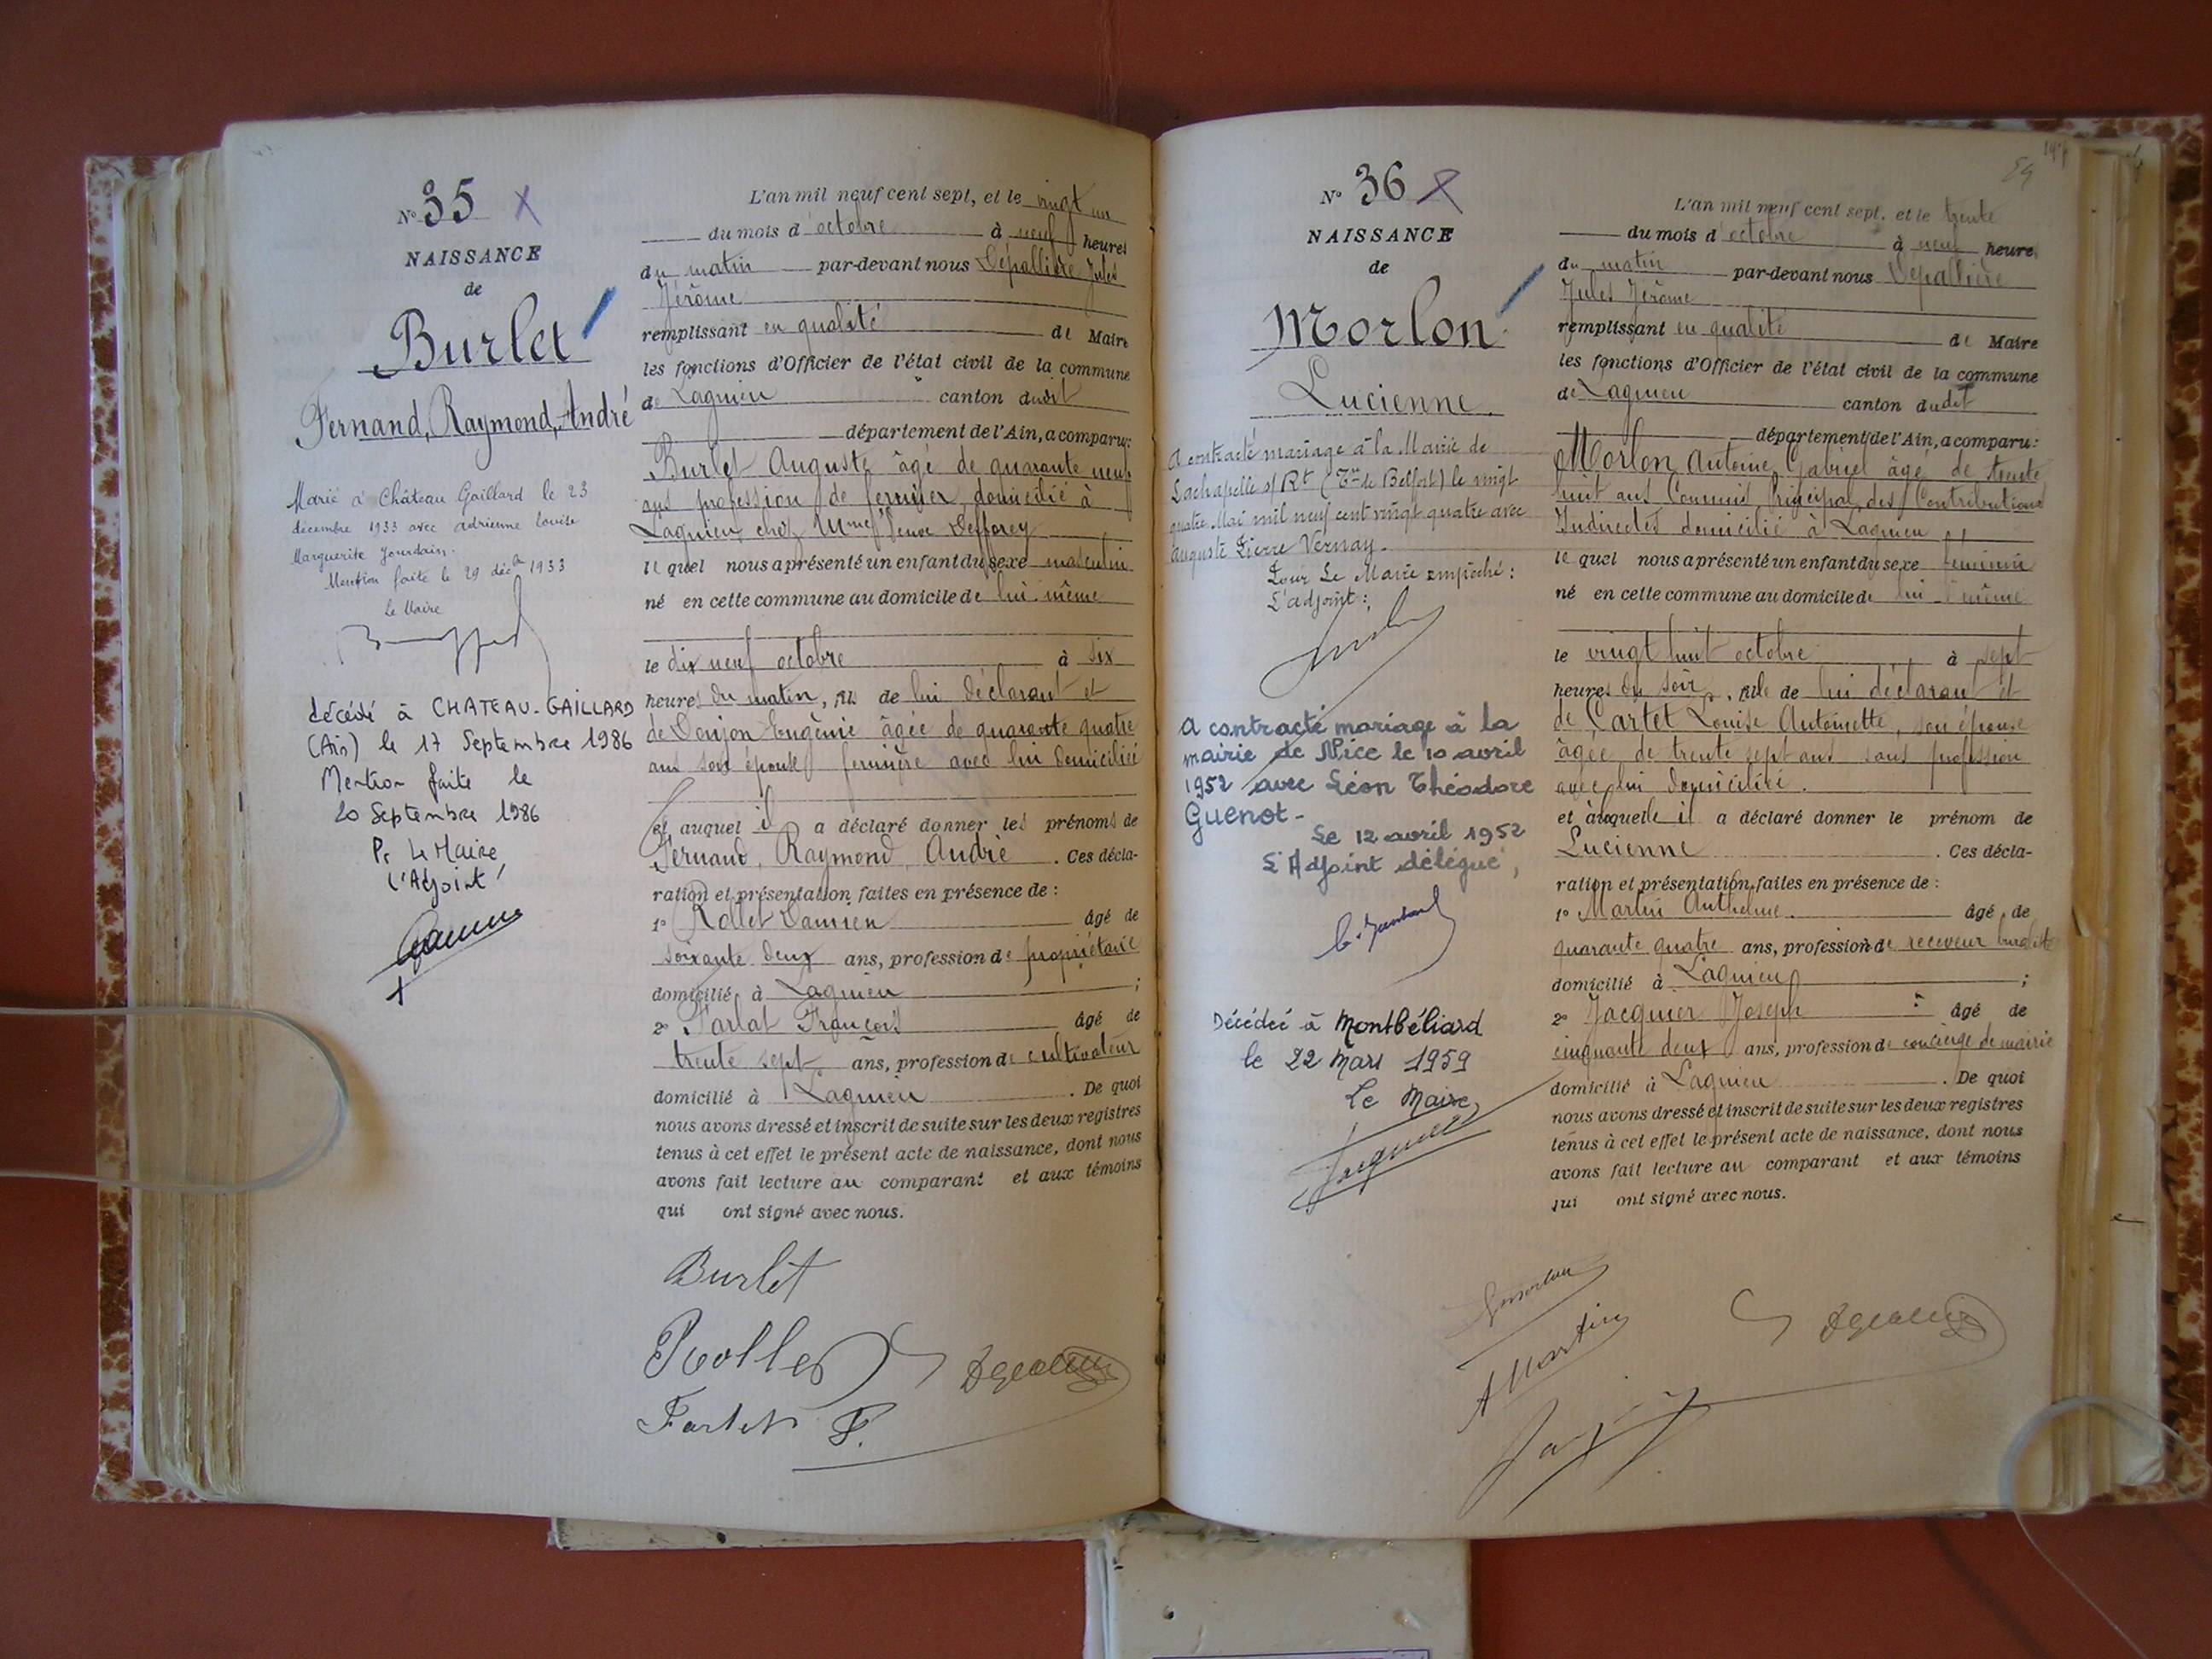 N° 35 X
NAISSANCE
de
Burlet
Fernand, Raymond, André
Marié à Château Gaillard le 23
décembre 1933 avec Adrienne Louise
Marguerite Jourdain.
Mention faite le 29 décbre 1933
le Maire
décédé à CHATEAU-GAILLARD
(Ain) le 17 Septembre 1986
Mention faite le
20 Septembre 1986
Pr Le Maire,
l'Adjoint
L'an mil neuf cent sept, et le vingt un
du mois d'octobre à neuf heures
du matin par-devant nous Dépallière Jules
Jérôme
remplissant en qualité de Maire
les fonctions d'Officier de l'état civil de la commune
de Lagnieu canton dudit
département de l'Ain, a comparu:
Burlet Auguste âgé de quarante neuf
ans profession de fermier domicilié à
Lagnieu chez Mme Veuve Defforey
le quel nous a présenté un enfant du sexe masculin
né en cette commune au domicile de lui-même
le dix neuf octobre à six
heures du matin, fils de lui déclarant et
de Donjon Eugénie âgée de quarante quatre
ans son épouse fermière avec lui domiciliée
et auquel il a déclaré donner les prénoms de
Fernand, Raymond, André . Ces décla-
ration et présentation faites en présence de :
1° Rollet Damien âgé de
soixante deux ans, profession de propriétaire
domicilié à Lagnieu ;
2° Farlat François âgé de
trente sept ans, profession de cultivateur
domicilié à Lagnieu . De quoi
nous avons dressé et inscrit de suite sur les deux registres
tenus à cet effet le présent acte de naissance, dont nous
avons fait lecture au comparant et aux témoins
qui ont signé avec nous.
Burlet
Rollet
N° 36 X
NAISSANCE
de
Morlon
Lucienne
A contracté mariage à la Mairie de
Lachapelle s/ Rt (Tre de Belfort) le vingt
quatre Mai mil neuf cent vingt quatre avec
Auguste Pierre Vernay.
Pour Le Maire empêché :
L'adjoint :
A contracté mariage à la
mairie de Nice le 10 avril
1952 avec Léon Théodore
Guenot -
Le 12 avril 1952
L'Adjoint délégué,
Décédée à Montbéliard
le 22 Mars 1959
Le Maire,
59
L'an mil neuf cent sept, et le trente
du mois d'octobre à neuf heures
du matin par-devant nous Dépallière
Jules Jérôme
remplissant en qualité de Maire
les fonctions d'Officier de l'état civil de la commune
de Lagnieu canton dudit
département de l'Ain, a comparu:
Morlon Antoine Gabriel âgé de trente
huit ans Commis Principal des Contributions
Indirectes domicilié à Lagnieu
le quel nous a présenté un enfant du sexe féminin
né en cette commune au domicile de lui-même
le vingt huit octobre à sept
heures du soir, fille de lui déclarant et
de Cartet Louise Antoinette, son épouse
âgée de trente sept ans sans profession
avec lui domiciliée.
et à laquelle il a déclaré donner le prénom de
Lucienne . Ces décla-
ration et présentation faites en présence de :
1° Martin Anthelme âgé de
quarante quatre ans, profession de receveur buraliste
domicilié à Lagnieu ;
2° Jacquier Joseph âgé de
cinquante deux ans, profession de concierge de mairie
domicilié à Lagnieu . De quoi
nous avons dressé et inscrit de suite sur les deux registres
tenus à cet effet le présent acte de naissance, dont nous
avons fait lecture au comparant et aux témoins
qui ont signé avec nous.
Morlon
A Martin